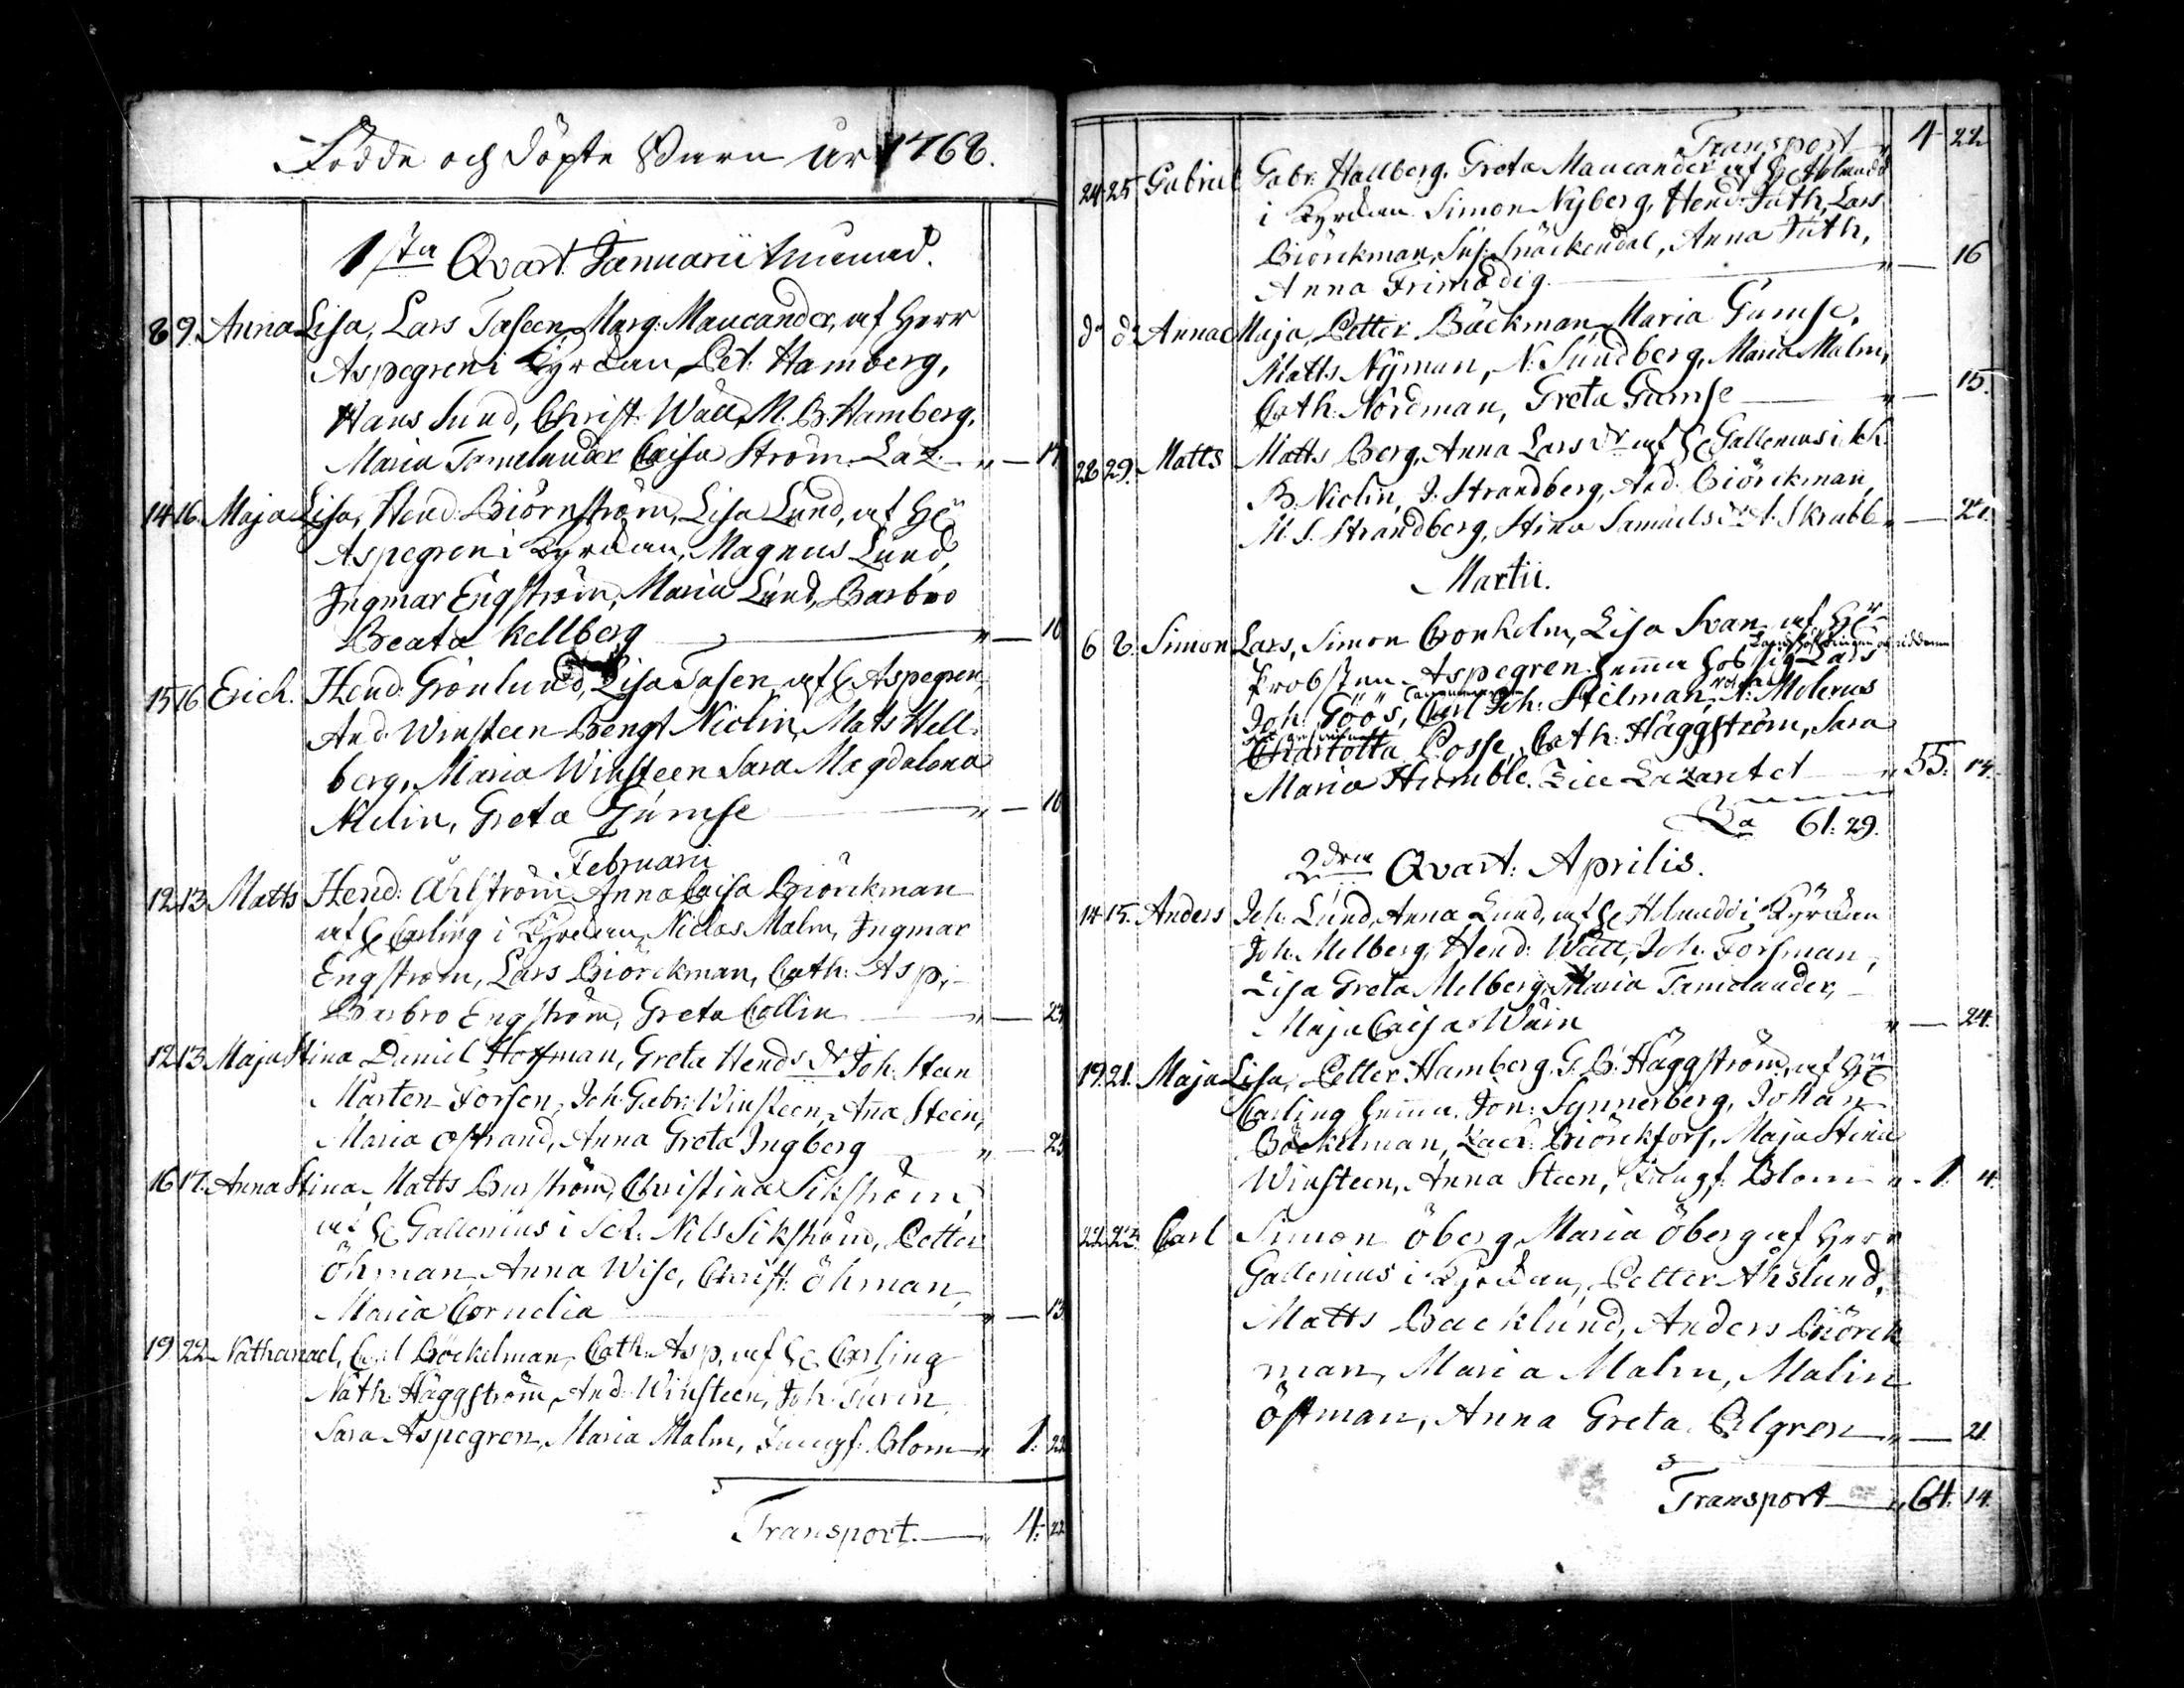 Födde och Döpte Barn År 1768.
1sta Qvart. Januarii Månad.
8 9. Anna Lisa, Lars Taseen, Marg: Maucander, af Herr
Aspegren i Kyrckan, Pet: Hamberg,
Hans Lund, Christ. Wall, M. B. Hamberg,
Maria Tamelander Caisa Ström. Laz. " — 17
14 16. Maja Lisa, Hend: Biörnström, Lisa Lund, af Hr
Aspegren i Kyrckan, Magnus Lund,
Ingmar Engström, Maria Lund, Barbro
Beata Kellberg " — 10
15 16 Erich. Hend: Grönlund, Lisa Tasen, af H Aspegren,
And. Winsteen Bengt Niclin, Mats Hell-
berg, Maria Winsteen Sara Magdalena
Niclin, Greta Gumse " — 10
Februarii
12 13 Matts Hend: Åhlström Anna Caisa Biörckman
af H Carling i Kyrckan, Niclas Malm, Ingmar
Engström, Lars Biörckman, Cath: Asp,
Barbro Engström, Greta Collin " — 24
12 13 Maja Stina Daniel Hoffman, Greta Hends dr Joh. Steen
Mårten Forsen, Joh. Gabr: Winsteen, Anna Steen,
Maria Östrand, Anna Greta Ingberg " — 25
16 17. Anna Stina, Matts Burström, Christina Sikström,
af H Gallenius i Sck. Nils Sikström, Petter
Öhman, Anna Wise, Christ: Öhman,
Maria Cornelia " — 13
19 22 Nathanael, Carl Böckelman, Cath. Asp, af H Carling
Nath. Häggström, And: Winsteen, Joh. Turin
Sara Aspegren, Maria Malm, Jungf: Blom " 1: 22
Transport. " 4: 22
Transport " 4 22
24 25 Gabriel Gabr: Hallberg, Greta Maucander af H Ahlmudd
i Kyrckan Simon Nyberg, Hend: Juth, Lars
Biörckman, Sus: Snäckendal, Anna Juth,
Anna Frimodig " — 16
do do Anna Maja, Petter Bäckman, Maria Gumse,
Matts Nyman, N. Sundberg, Maria Malm,
Cath: Nordman, Greta Gumse " — 15.
28 29. Matts Matts Berg, Anna Lars dr af H Gallenius i Sck
B. Niclin, J. Strandberg, And. Biörckman,
M. S. Strandberg, Stina Samuels dr A. Skrubb " — 21.
Martii.
6 8. Simon Lars, Simon Cronholm, Lisa Svan af Hr
Probsten Aspegren hemma hos sig Lars
Joh: Göös, Carl Joh: Stilman, N: Molerus
Charlotta Posse, Cath: Häggström, Sara
Maria Humble. Til Lazaretet " 55: 14.
Sa 61: 29.
2dra Qvart: Aprilis.
14 15. Anders Joh: Lund, Anna Lund, af H Ahlmudd i Kyrckan
Joh. Melberg, Hend: Wall, Joh. Forsman,
Lisa Greta Melberg, Maria Tamelander,
Maja Caisa Wäin " — 24.
19 21. Maja Lisa, Petter Hamberg, G. B. Häggström, af Hr
Carling hemma. Jon: Synnerberg, Johan
Böckelman, Zach: Biörckfors, Maja Stina
Winsteen, Anna Steen, Jungf: Blom " 1. 4.
22 24 Carl Simon Öberg, Maria Öberg af Herr
Gallenius i Kyrckan, Petter Åhslund,
Matts Backlund, Anders Biörck
man, Maria Malm, Malin
Östman, Anna Greta Pelgren " — 21.
Transport " 64. 14.